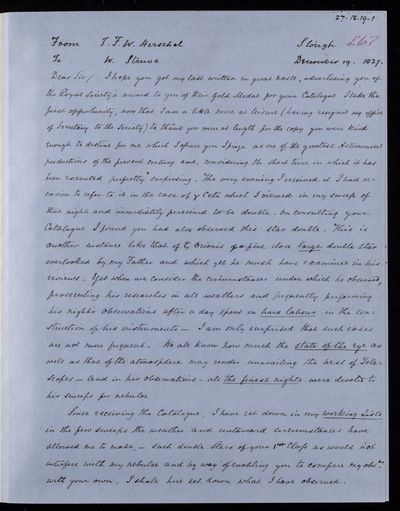 27-12-19-1
From J. F. W. Herschel Slough £67
To W. Struve December 19. 1827.
Dear Sir/ I hope you got my last written in great haste, advertising you of
the Royal Society's award to you of their Gold Medal for your Catalogue I take the
first opportunity, now that I am a little more at leisure (having resigned my office
of Secretary to the Society) to thank you more at length for the copy you were kind
enough to destine for me which I assure you I prize as one of the greatest Astronomical
productions of the present century and, considering the short time in which it has
been executed perfectly surprising. The very evening I received it I had oc-
casion to refer to it in the case of γ Ceti which I viewed in my sweeps of
that night and immediately perceived to be double. On consulting your
Catalogue I found you had also observed this star double. This is
another instance like that of ζ Orionis of a fine close large double star
overlooked by my Father and which yet he must have examined in his
reviews. Yet when we consider the circumstances under which he observed,
prosecuting his researches in all weathers and frequently performing
his night's observations after a day spent in hard labour in the con-
struction of his instruments — I am only surprised that such cases
are not more frequent. We all know how much the state of the eye as
well as that of the atmosphere may render unavailing the best of Tele-
scopes — and in his observations — all the finest nights were devoted to
his sweeps for nebulae
Since receiving the Catalogue, I have set down in my working Lists
in the few sweeps the weather and untoward circumstances have
allowed me to make, — such double Stars of your 1st Class as would not
interfere with my nebulae and by way of enabling you to compare my obsns.
with your own, I shall here set down what I have observed.